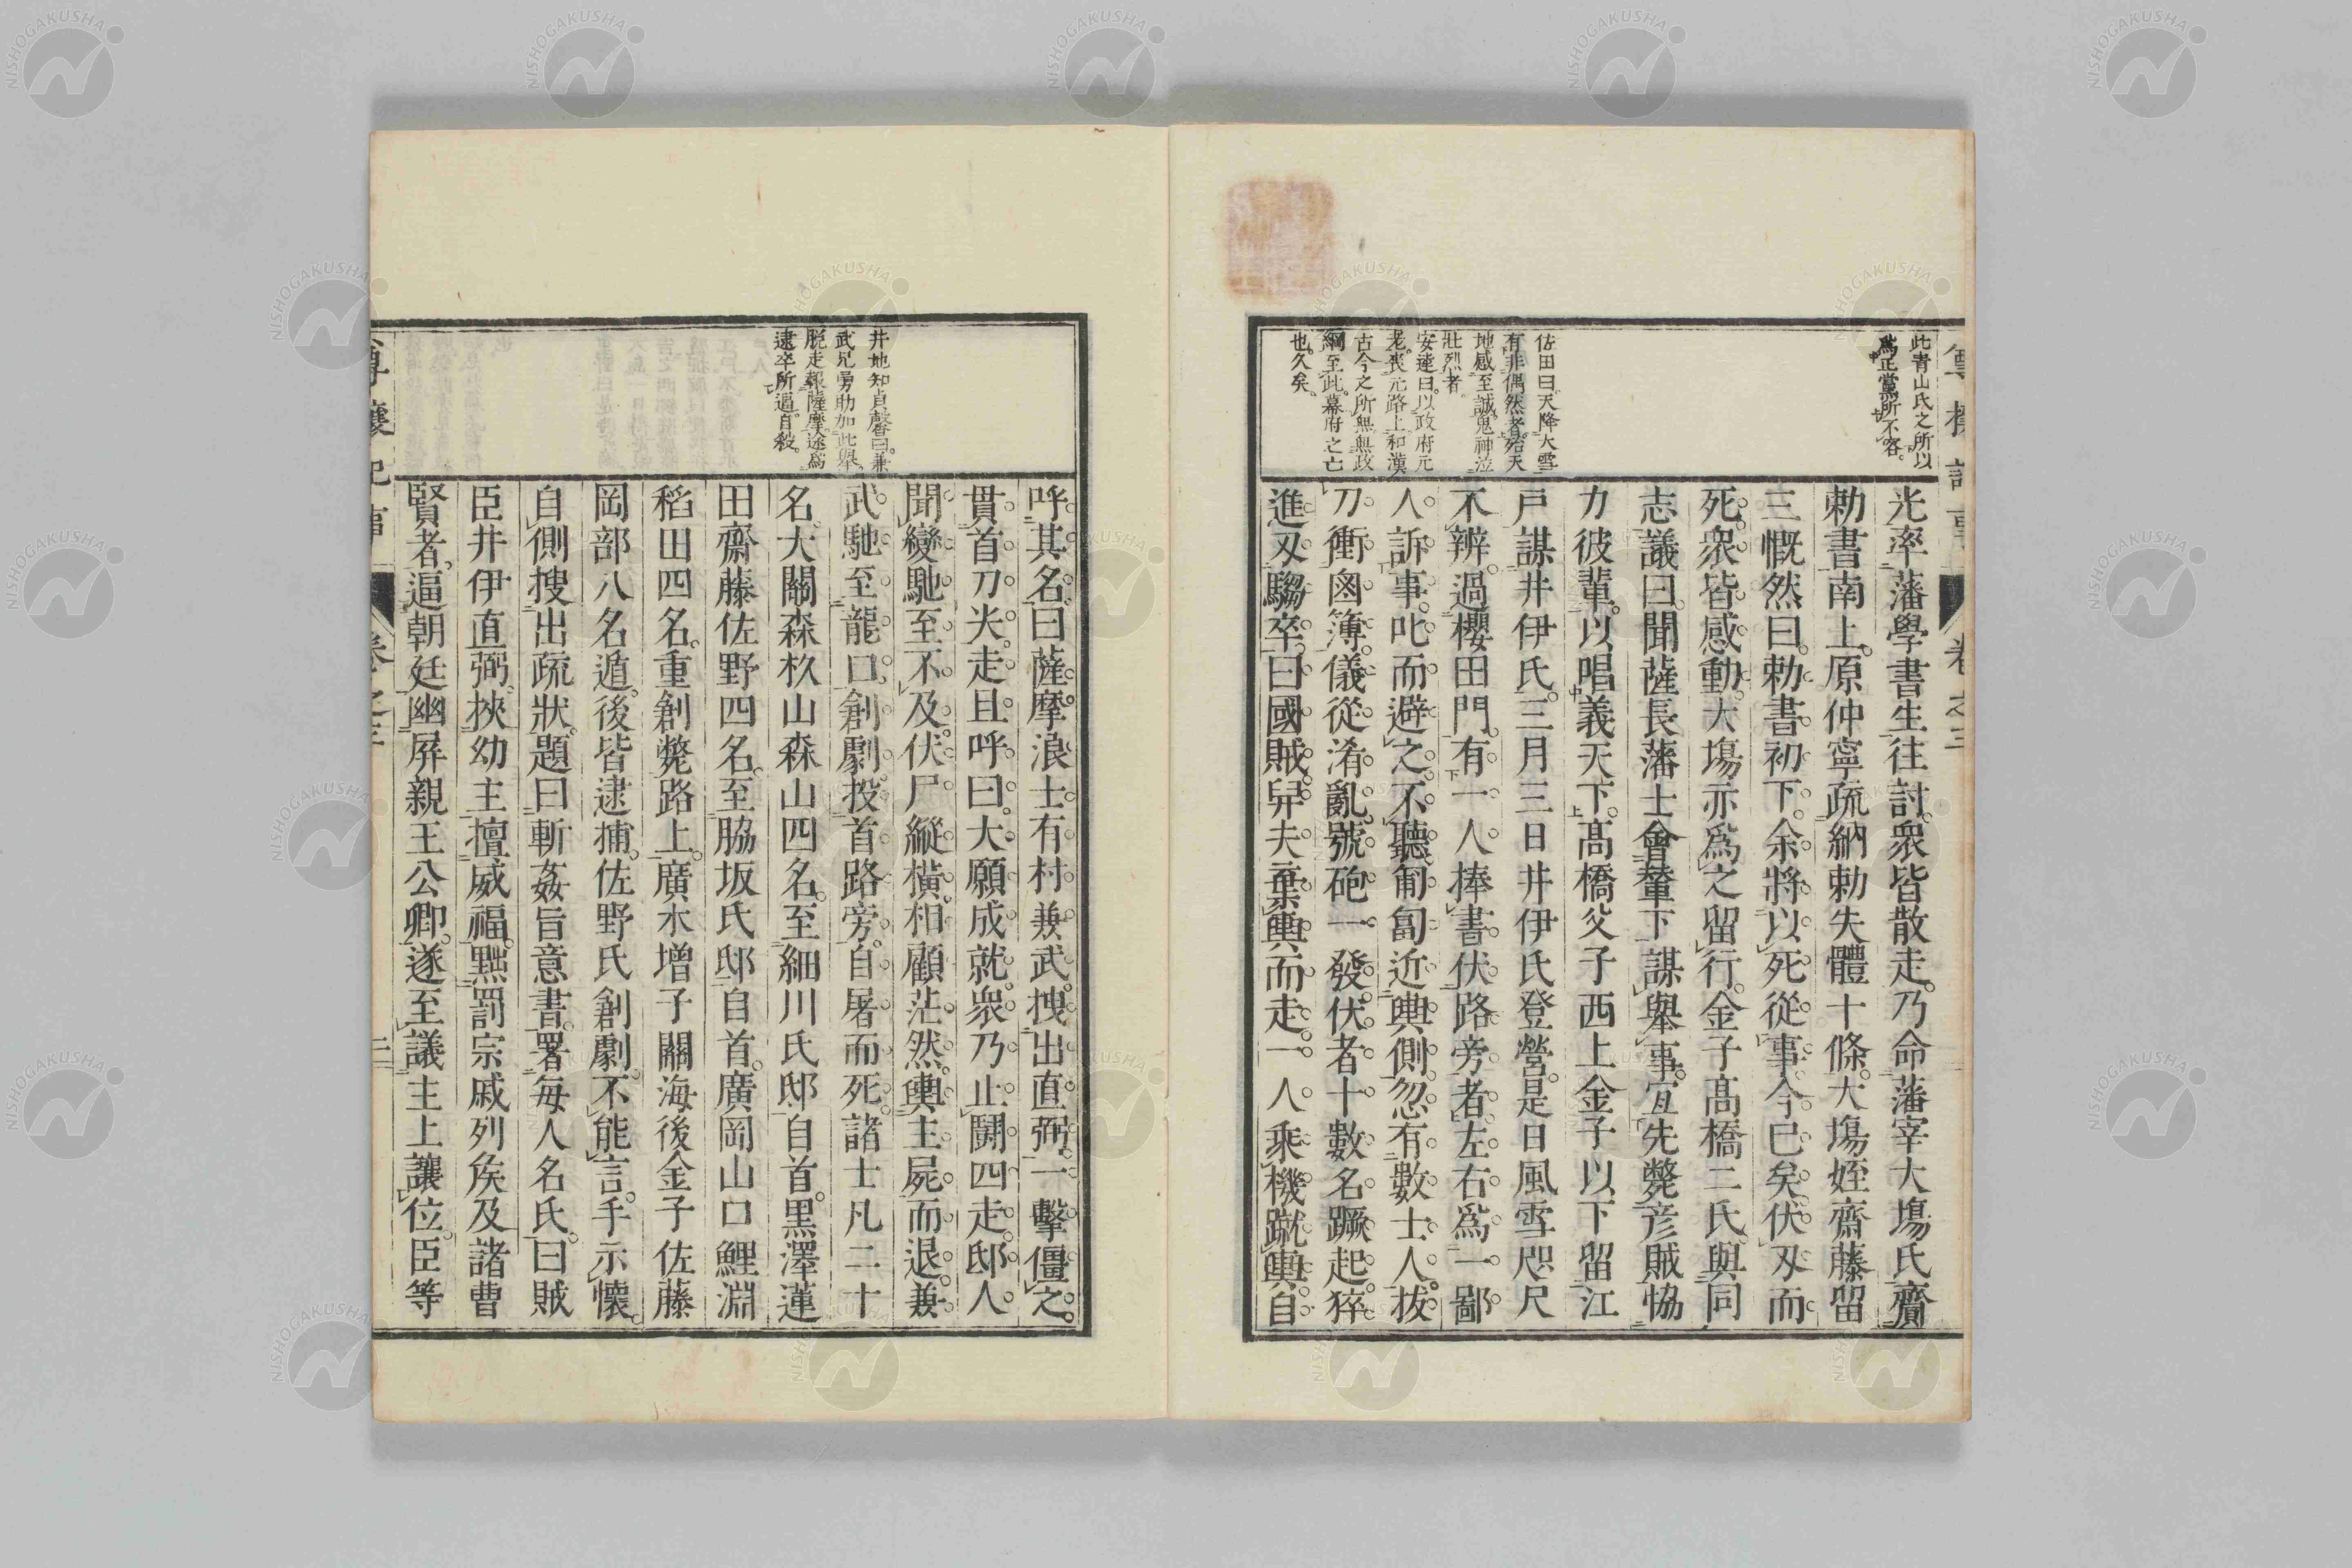 此青山氏之所以
爲正黨所不容。
佐田曰。天降大雪
有非偶然者。殆天
地感至誠。鬼神泣
壯烈者。
安達曰。以政府元
老。喪元路上。和漢
古今之所無。無政
綱至此。幕府之亡
也。久矣。
光率藩學書生往討。衆皆散走。乃命藩宰大塲氏齎
勅書南上。原仲寧疏納勅失體十條。大塲姪齋藤留
三慨然曰。勅書初下。余將以死從事。今已矣。伏刄而
死。衆皆感動。大塲亦爲之留行。金子髙橋二氏與同
志議曰。聞薩長藩士會輦下。謀舉事。宜先斃彥賊恊
力彼輩。以唱義天下。髙橋父子西上。金子以下留江
戶謀井伊氏。三月三日井伊氏登營。是日風雪咫尺
不辨。過櫻田門。有一人捧書伏路旁者。左右爲一鄙
人訴事。叱而避之。不聽。匍匐近輿側。忽有數士人。拔
刀衝鹵簿。儀從淆亂。號砲一發。伏者十數名蹶起。猝
進刄騶卒。曰國賊。舁夫棄輿而走。一人乘機蹴輿。自
卷之三
井地知貞馨曰。兼
武兄雩助加此舉。
脫走報薩摩。途爲
逮卒所逼自殺。
呼其名。曰薩摩浪士有村兼武。拽出直弼。一擊僵之。
貫首刀尖。走且呼曰。大願成就。衆乃止鬪四走。邸人
聞變馳至。不及。伏尸縱橫。相顧茫然。輿主屍而退。兼
武馳至龍口。創劇。投首路旁。自屠而死。諸士凡二十
名。大關森杦山森山四名。至細川氏邸自首。黑澤蓮
田齋藤佐野四名。至脇坂氏邸自首。廣岡山口鯉淵
稻田四名。重創斃路上。廣木增子關海後金子佐藤
岡部八名遁。後皆逮捕。佐野氏創劇。不能言。手示懷。
自側搜出疏狀。題曰斬姦旨意書。署每人名氏。曰賊
臣井伊直弼。挾幼主。擅威福。黜罰宗戚列矦及諸曹
賢者。逼朝廷。幽屏親王公卿。遂至議主上讓位。臣等
尊攘紀事
卷之三
二